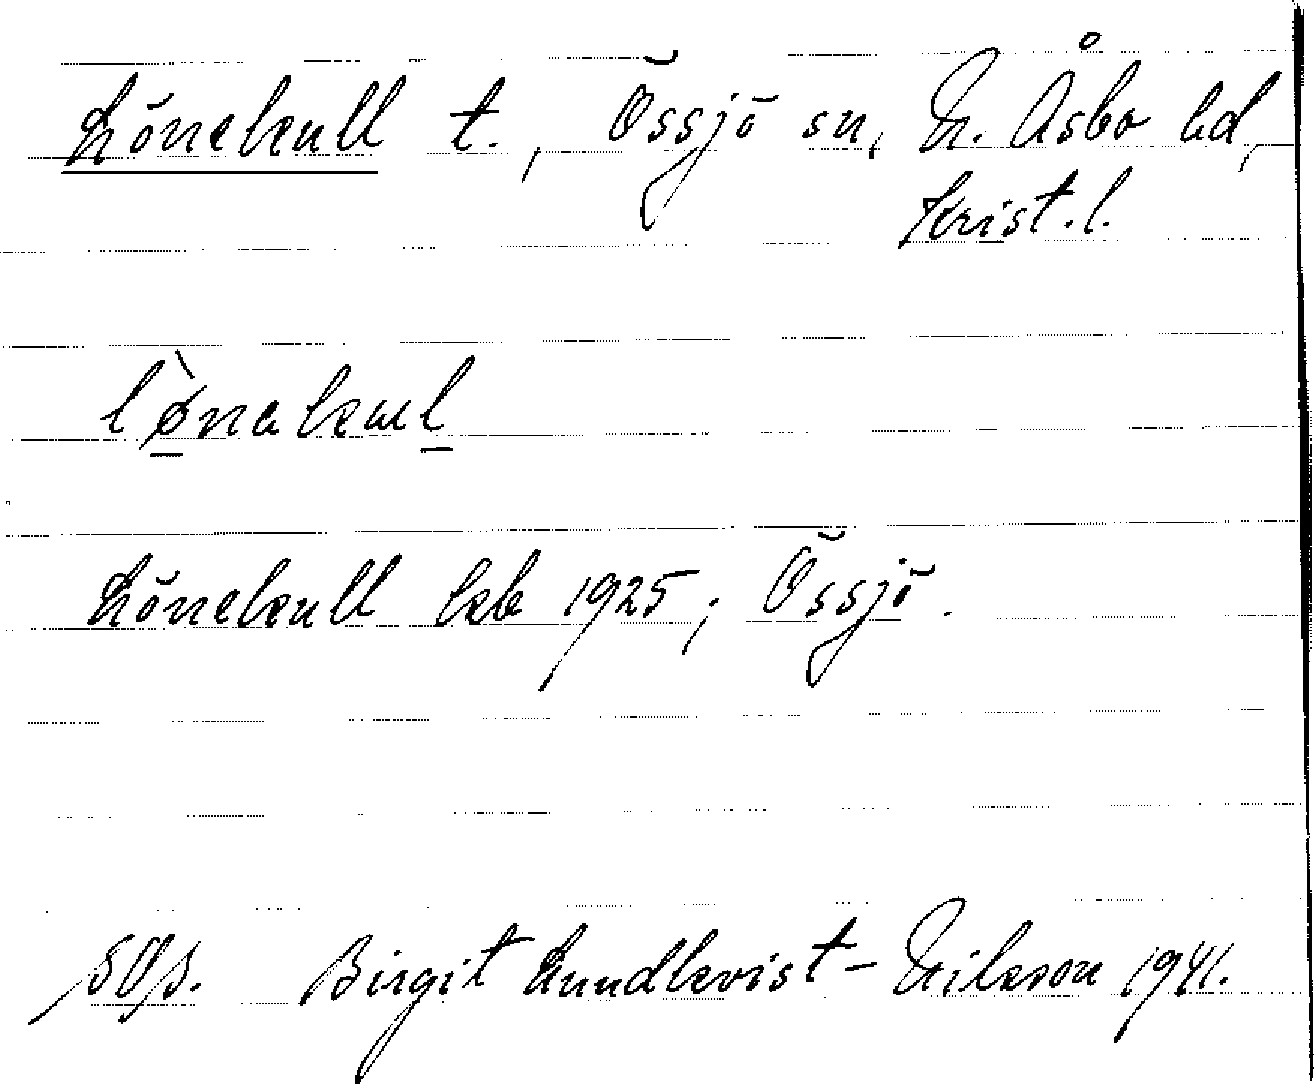 Lönekull t., Össjö sn, N. Åsbo hd,
Krist. l.
lø̀nakul
Lönekull kb 1925; Össjö.
SOfS. Birgit Lundkvist-Nilsson 1941.